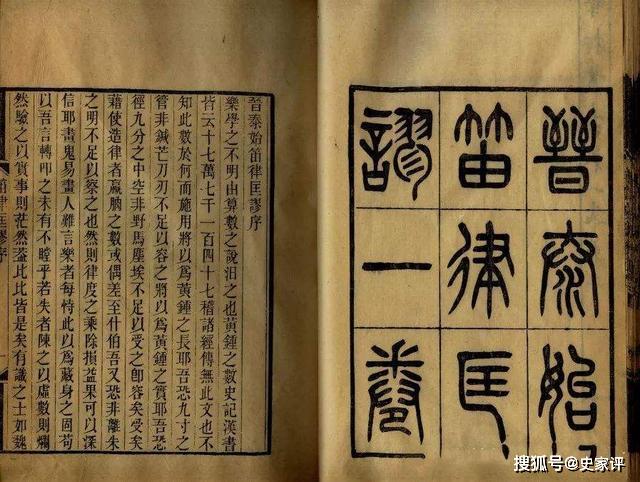 晉泰始
笛律匡
謬一卷
晉泰始笛律匡謬序
樂學之不明由算數之說汨之也黃鍾之數史記漢書
皆云十七萬七千一百四十七稽諸經傳無此文也不
知此數於何而施用將以爲黃鍾之長耶吾恐九寸之
管非鍼芒刀刃不足以容之將以爲黃鍾之實耶吾恐
徑九分之中空非野馬塵埃不足以受之卽容矣受矣
藉使造律者嬴朒之數或偶差至什伯吾又恐非離朱
之明不足以察之也然則律度之乘除損益果可以深
信耶畫鬼易畫人難言樂者每恃此以爲藏身之固苟
以吾言轉叩之未有不瞠乎若失者陳之以虛數則爛
然驗之以實事則茫然蓋比比皆是矣有識之士如魏
笛律匡謬序
搜狐号@史家评